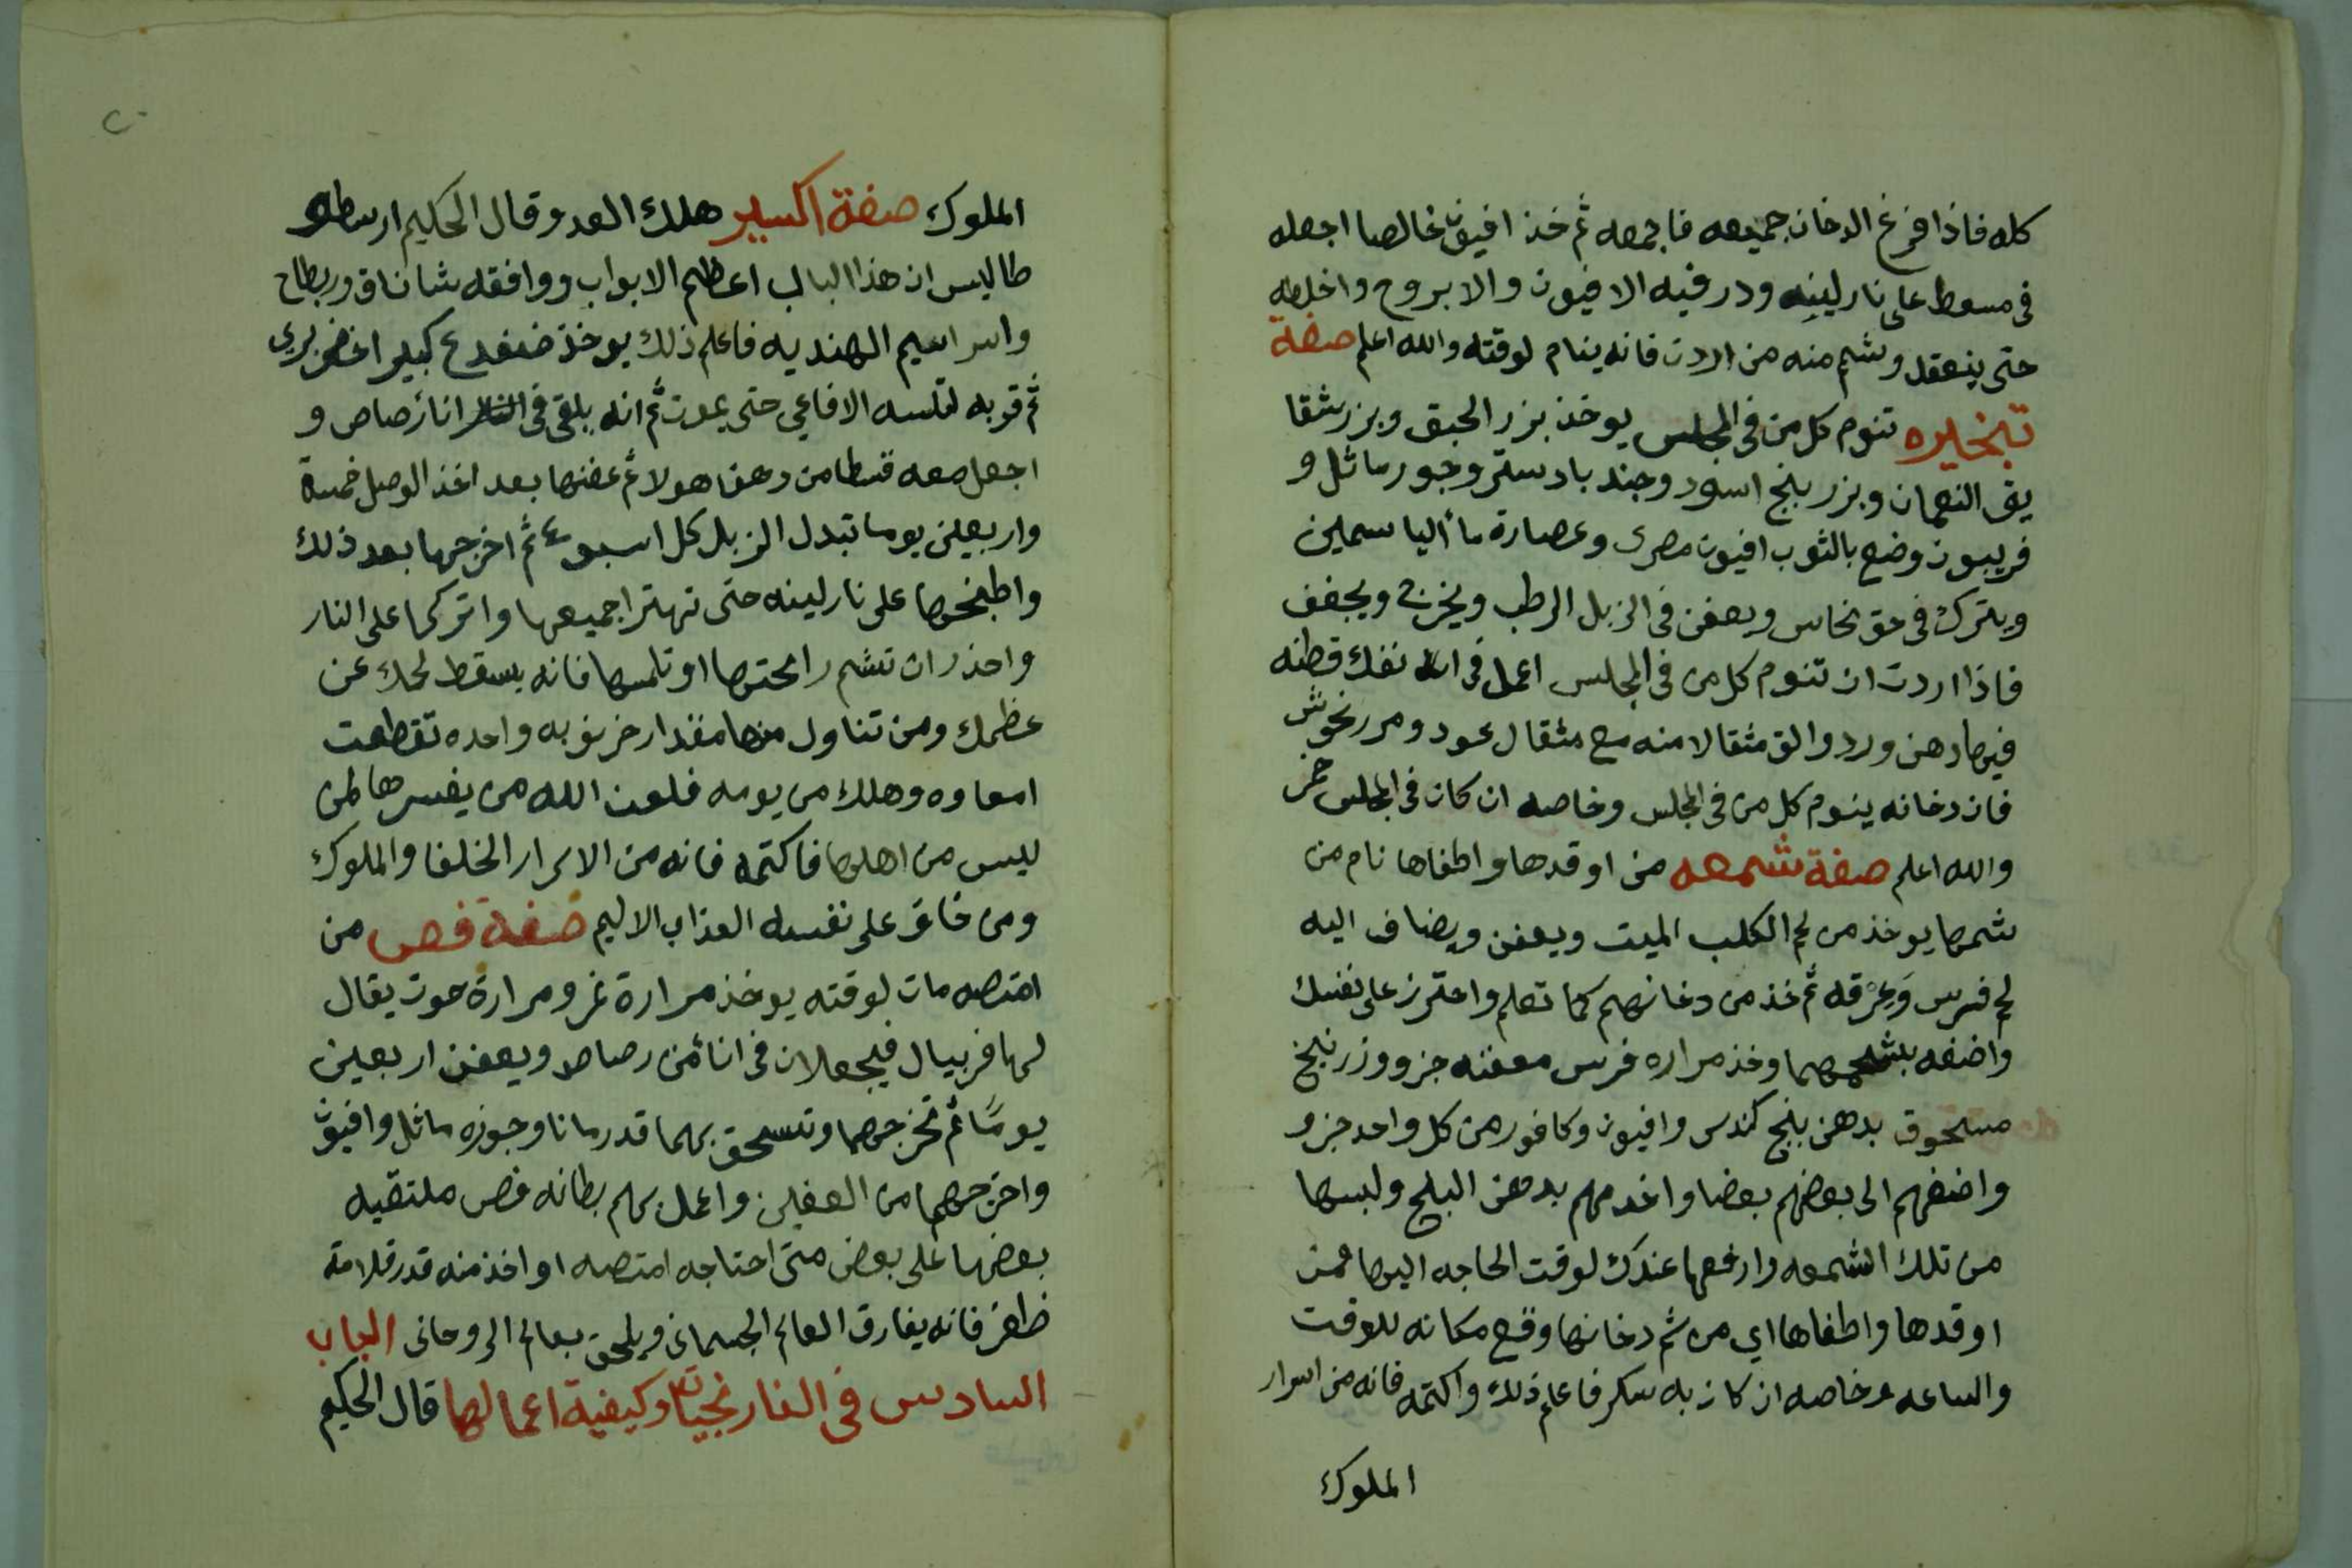 كله فاذا فرغ الدخان جميعه فاجمعه ثم خذ افيون خالصا اجعله
فى مسعط على نار لينه ودر فيه الافيون والابروح واخلطه
حتى ينعقد وشم منه من اردت فانه ينام لوقته والله اعلم صفة
تبخيره تنوم كل من فى المجلس يوخذ بزر الحبق وبزر شقا
يق النعمان وبزر بنج اسود وجند بادستر وجور ماثل و
فربيون وضع بالثوب افيون مصرى وعصارة ماء الياسمين
ويترك فى حق نحاس ويعفن فى الزبل الرطب ويخرج ويجفف
فاذا اردت ان تنوم كل من فى المجلس اعمل فى انفك قطنه
فيها دهن ورد والق مثقالا منه مع مثقال عود ومرزنجوش
فان دخانه ينوم كل من فى المجلس وخاصه ان كان فى المجلس خمر
والله اعلم صفة شمعه من اوقدها واطفاها نام من
شمها يوخذ من لحم الكلب الميت ويعفن ويضاف اليه
لحم فرس وعرقه ثم خذ من دخانهم كما تعلم واحترز على نفسك
واضفه بشحمهما وخذ مراره فرس معفنه جزو وزرنيخ
مسحوق بدهن بنج كندس وافيون وكافور من كل واحد جزو
واضفهم الى بعضهم بعضا واخدمهم بدهن البلح ولبسها
من تلك الشمعه وارفعها عندك لوقت الحاجه اليها فمن
اوقدها واطفاها اي من شم دخانها وقع مكانه للوقت
والساعه وخاصه ان كان به سكر فاعلم ذلك واكتمه فانه من اسرار
الملوك
٢٠
الملوك صفة اكسير هلك العدو قال الحكيم ارسطو
طاليس ان هذا الباب اعظم الابواب ووافقه شاناق وربطاح
واسراسيم الهنديه فاعلم ذلك يوخذ ضفدع كبير اخضر بري
ثم قربه لتلسه الافاعي حتى يموت ثم انه يلقى فى اناء رصاص و
اجعل معه قسطا من دهن هولا ثم عفنها بعد اخذ الوصل خمسة
واربعين يوما تبدل الزبل كل اسبوع ثم اخرجها بعد ذلك
واطبخها على نار لينه حتى تهترا جميعها واتركها على النار
واحذر ان تشم رائحتها او تلمسها فانه يسقط لحمك عن
عظمك ومن تناول منها مقدار خرنوبه واحده تقطعت
امعاوه وهلك من يومه فلعن الله من يفسرها لمن
ليس من اهلها فاكتمه فانه من الاسرار الخلفا والملوك
ومن خاف على نفسه العذاب الاليم صفة فص من
امتصه مات لوقته يوخذ مرارة نمر ومرارة حوت يقال
لها فربيال فيجعلان فى اناء من رصاص ويعفن اربعين
يوما ثم تخرجهما وتسحق بهما قدر مانا وجوزه ماثل وافيون
واخرجهما من العفين واعمل بهم بطانه فص ملتقيه
بعضها على بعض متى احتاجه امتصه او اخذ منه قدر قلامة
ظفر فانه يفارق العالم الجسمانى ويلحق بعالم الروحانى الباب
السادس فى النارنجيات وكيفية اعمالها قال الحكيم